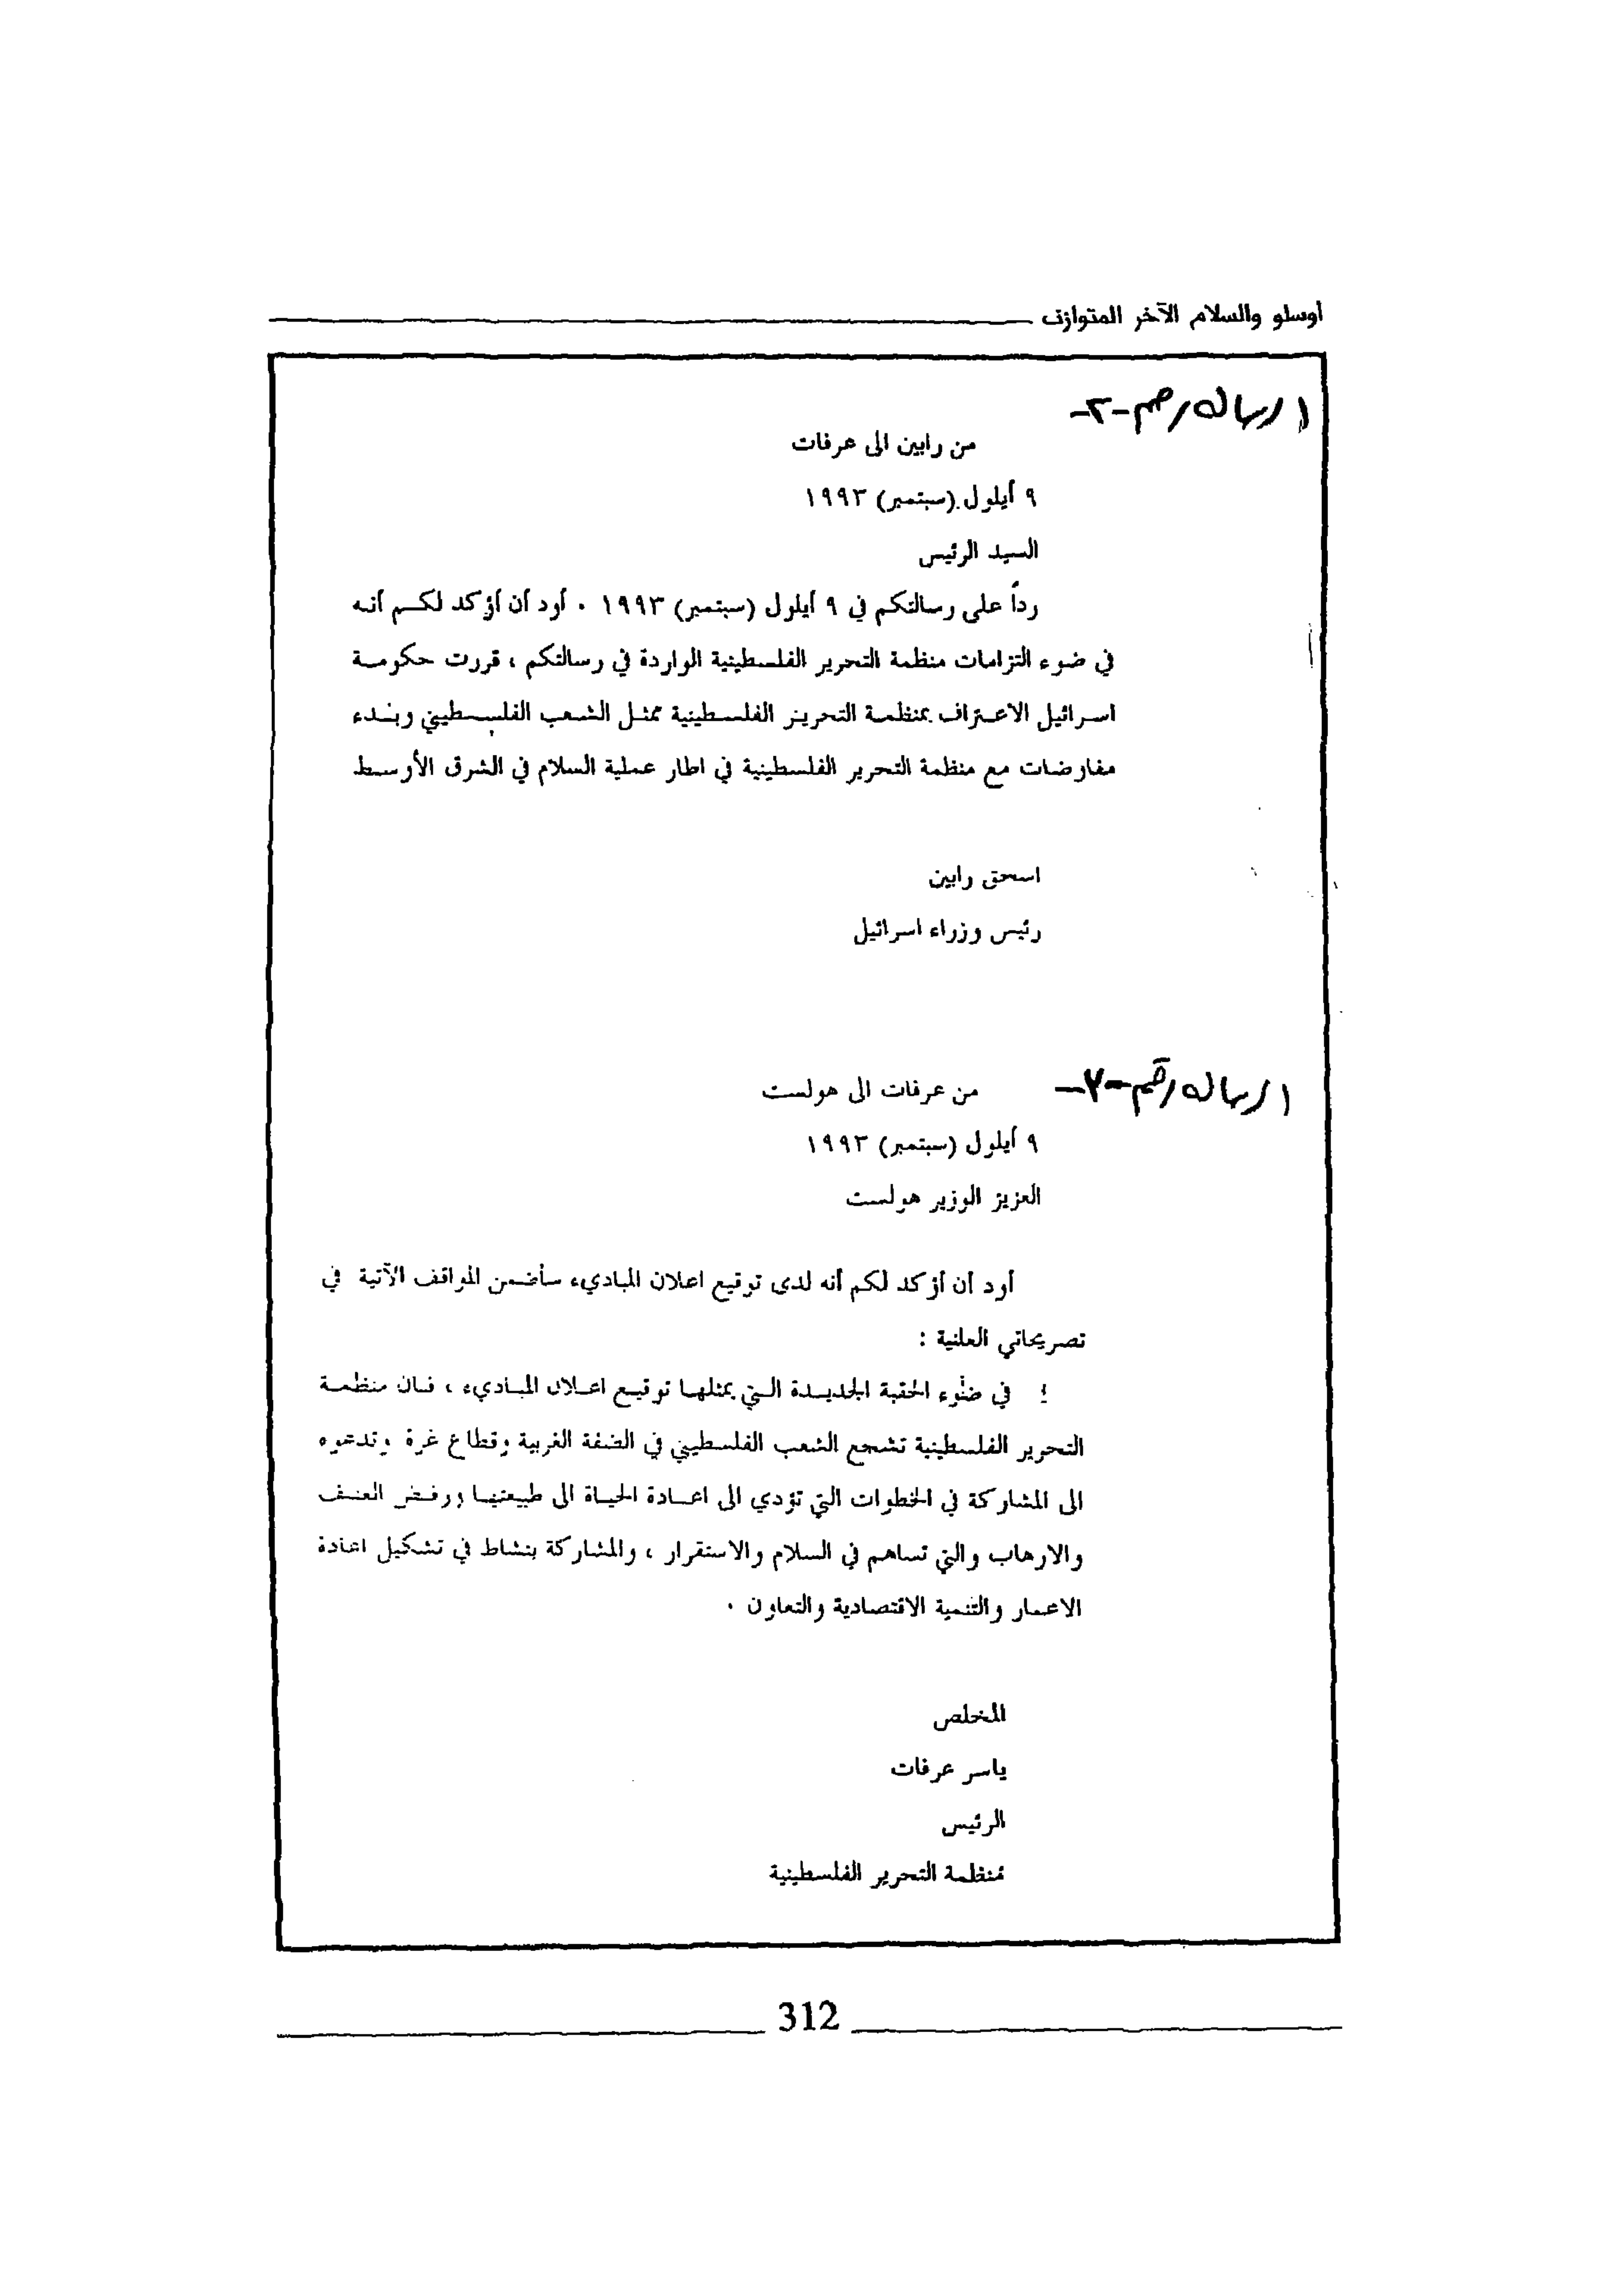 أوسلو والسلام الآخر المتوازن
الرسالة رقم -٢-
من رابين الى عرفات
٩ أيلول (سبتمبر) ١٩٩٣
السيد الرئيس
رداً على رسالتكم في ٩ أيلول (سبتمبر) ١٩٩٣ . أود أن أؤكد لكم أنه
في ضوء التزامات منظمة التحرير الفلسطينية الواردة في رسالتكم ، قررت حكومة
اسرائيل الاعتراف بمنظمة التحرير الفلسطينية ممثل الشعب الفلسطيني وبدء
مفاوضات مع منظمة التحرير الفلسطينية في اطار عملية السلام في الشرق الأوسط
اسحق رابين
رئيس وزراء اسرائيل
الرسالة رقم
من عرفات الى هولست
٩ أيلول (سبتمبر) ١٩٩٣
العزيز الوزير هولست
أود أن أؤكد لكم أنه لدى توقيع اعلان المباديء سأضمن المواقف الآتية في
تصريحاتي العلنية :
في ضوء الحقبة الجديدة التي يمثلها توقيع اعلان المباديء ، فان منظمة
التحرير الفلسطينية تشجع الشعب الفلسطيني في الضفة الغربية وقطاع غزة وتدعوه
الى المشاركة في الخطوات التي تؤدي الى اعادة الحياة الى طبيعتها ورفض العنف
والارهاب والتي تساهم في السلام والاستقرار ، والمشاركة بنشاط في تشكيل اعادة
الاعمار والتنمية الاقتصادية والتعاون .
المخلص
ياسر عرفات
الرئيس
منظمة التحرير الفلسطينية
312